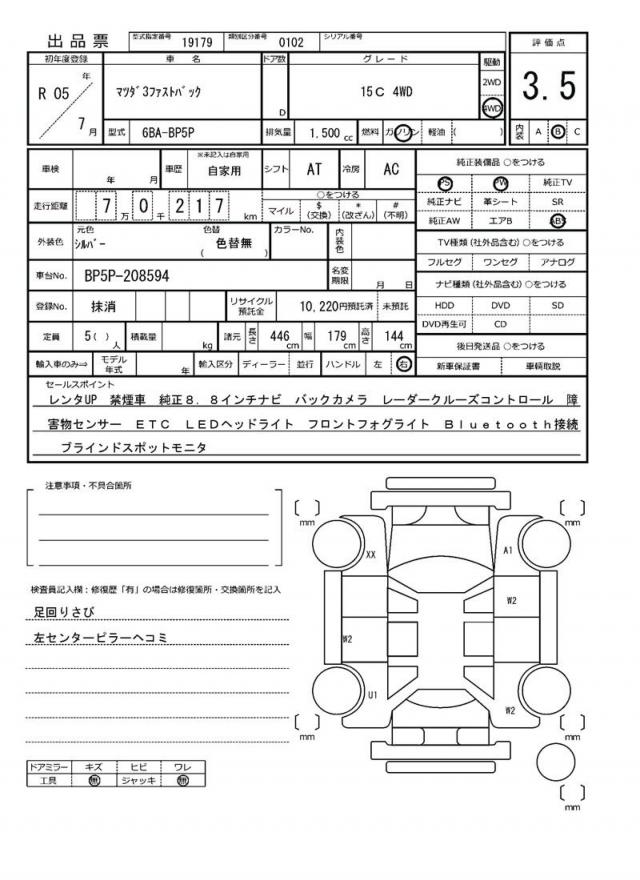 出品票 型式指定番号 19179 類別区分番号 0102 シリアル番号
評価点
3.5
初年度登録 車名 ドア数 グレード 駆動
R 05 年 7 月
マツダ3ファストバック D 15C 4WD
2WD
4WD
型式 6BA-BP5P 排気量 1.500 cc 燃料 ガソリン 軽油 ( )
内装 A B C
車検 年 月 車歴 ※未記入は自家用 自家用 シフト AT 冷房 AC
走行距離 7 万 0 千 2 1 7 km
○をつける
マイル $(交換) *(改ざん) #(不明)
外装色 元色 シルバー 色替 ( 色替無 ) カラーNo. 内装色
車台No. BP5P-208594 名変期限 月 日
登録No. 抹消 リサイクル預託金 10,220円預託済 未預託
定員 5( ) 人 積載量 kg 諸元 長さ 446 cm 幅 179 cm 高さ 144 cm
輸入車のみ⇒ モデル年式 年 輸入区分 ディーラー 並行 ハンドル 左 右
純正装備品 ○をつける
PS PW 純正TV
純正ナビ 革シート SR
純正AW エアB ABS
TV種類(社外品含む)○をつける
フルセグ ワンセグ アナログ
ナビ種類(社外品含む)○をつける
HDD DVD SD
DVD再生可 CD
後日発送品 ○をつける
新車保証書 車輌取説
セールスポイント
レンタUP 禁煙車 純正8.8インチナビ バックカメラ レーダークルーズコントロール 障
害物センサー ETC LEDヘッドライト フロントフォグライト Bluetooth接続
ブラインドスポットモニタ
注意事項・不具合箇所
検査員記入欄:修復歴「有」の場合は修復箇所・交換箇所を記入
足回りさび
左センターピラーヘコミ
ドアミラー キズ ヒビ ワレ
工具 無 ジャッキ 無
mm mm
XX A1
W2
W2
U1 W2
mm mm
mm